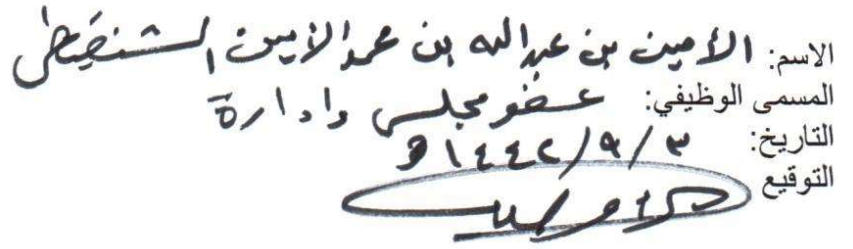 الاسم: الأمين بن عبدالله بن محمد الأمين الشنقيطي
المسمى الوظيفي: عضو مجلس وادارة
التاريخ: ١٤٤٢/٩/٣ه
التوقيع